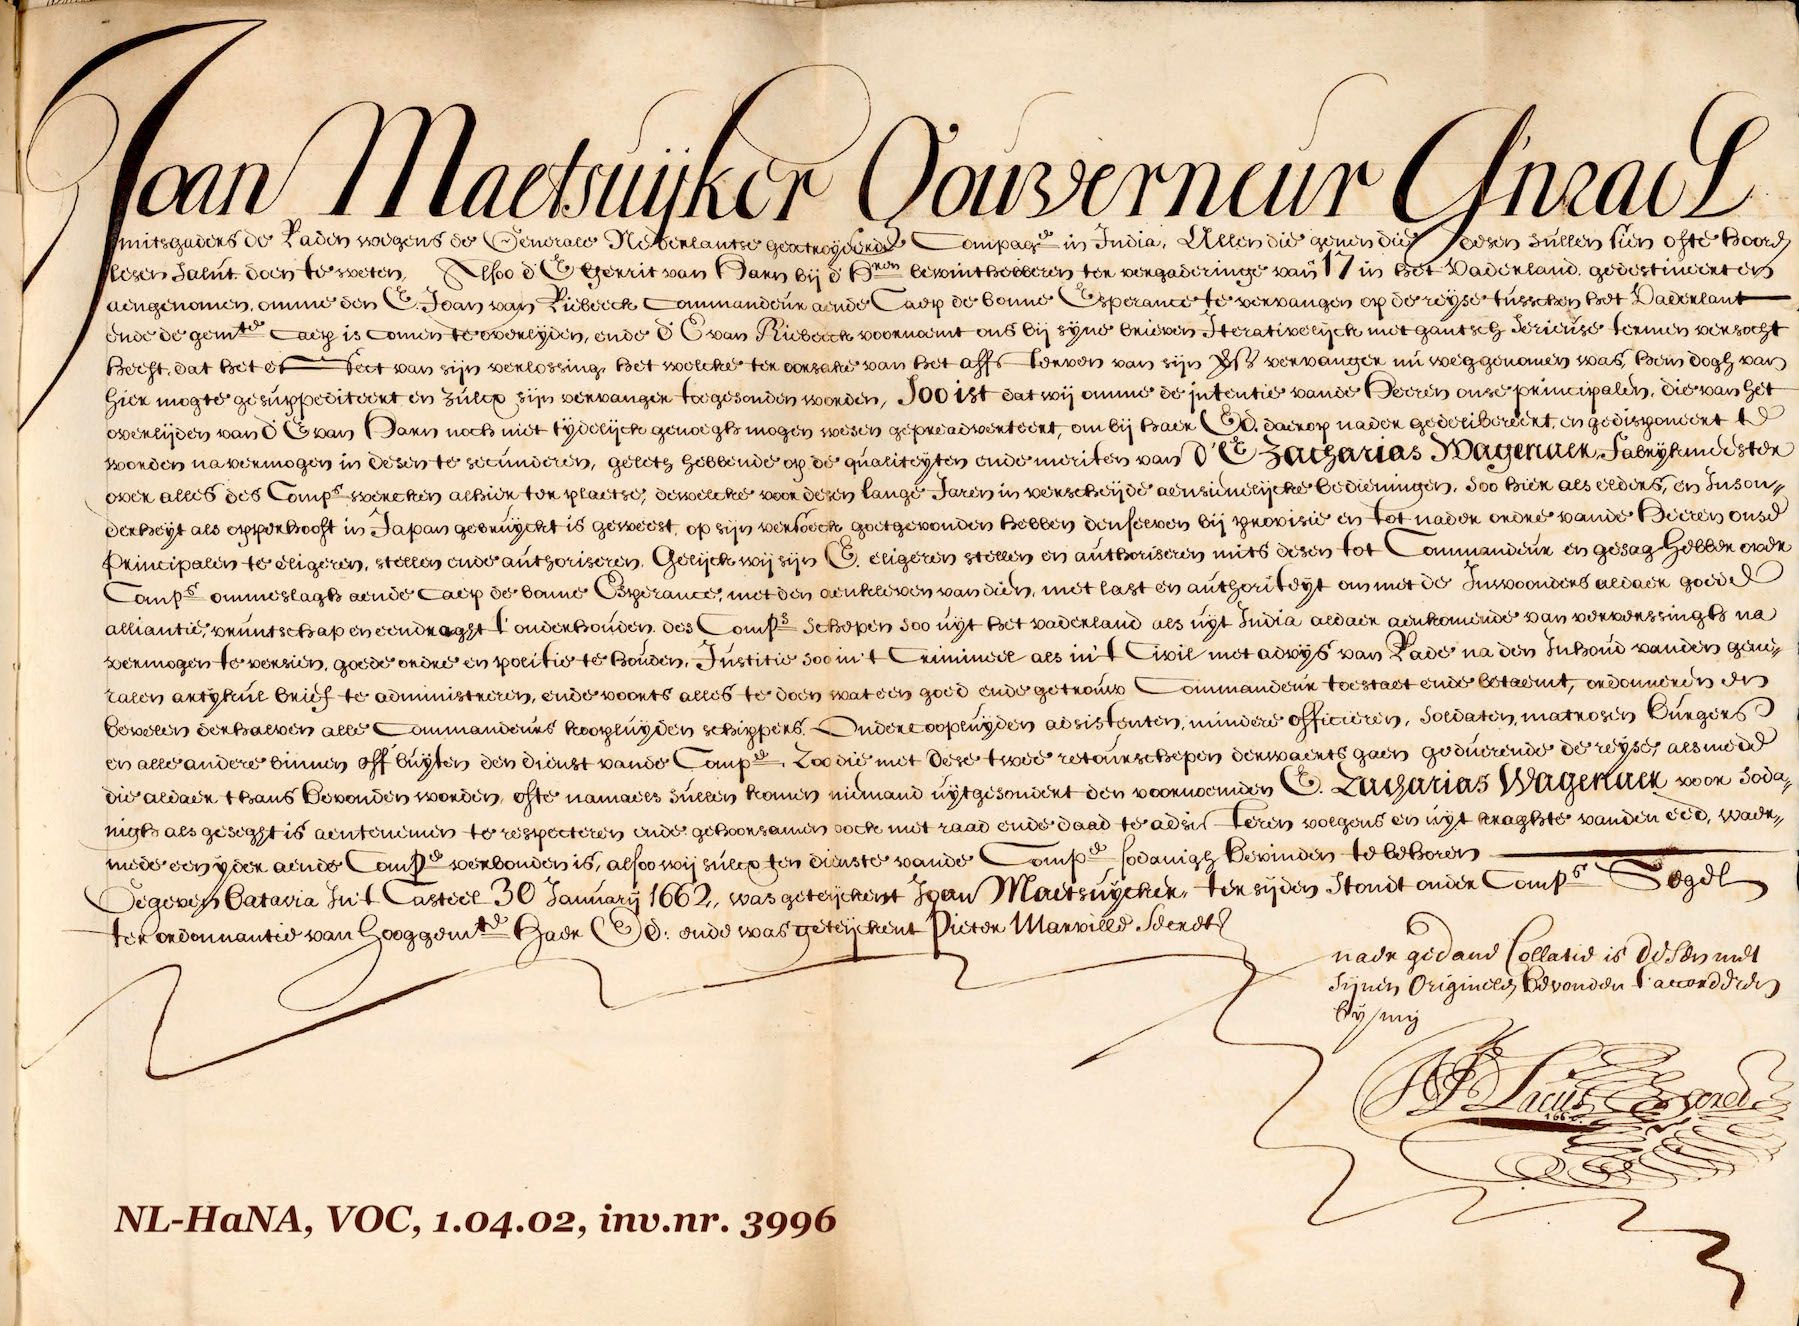 Joan Maetsuijker Gouverneur Gnrael
mitsgaders de Raden wegens de Generale Nederlantse geoctroyeerde Compage in India, Allen die genen die desen sullen sien ofte hooren
lesen salut doen te weten, Alsoo d' E Gerrit van Harn bij d' Hren bewinthebberen ter vergaderinge van 17 in het Vaderland gedestineert en
aengenomen, omme den E. Joan van Riebeeck Commandeur aende Caep de bonne Esperance te vervangen op de reyse tusschen het Vaderlant
ende de gemte Caep is comen te overlyden, ende d' E van Riebeeck voornaemt ons bij syne brieven Iterativelijck met gantsch serieuse termen versocht
heeft, dat het effect van sijn verlossing, het welcke ter oorsake van het affsterven van sijn vervanger nu weggenomen was, hem dogh van
hier mogte gesuppediteert en zulcx sijn vervanger toegesonden worden, Soo ist dat wij omme de intentie vande Heeren onse principalen, die van het
overlijden van d' E van Harn noch niet tydelijck genoegh mogen wesen gepreadverteert, om bij haer Ed. daerop nader gedelibereert, en gedisponeert te
worden na vermogen in desen te secunderen, geleth hebbende op de qualiteyten ende meriten van d' E Zacharias Wagenaer, Fabryckmeester
over alles des Comps wercken alhier ter plaetse, dewelcke voor desen lange Jaren in verscheyde aensienelijcke bedieningen, soo hier als elders, en Inson-
derheyt als opperhooft in Japan gebruyckt is geweest, op sijn versoeck goetgevonden hebben denselven bij provisie en tot nader ordre vande Heeren onse
Principalen te eligeren, stellen ende authoriseren, Gelijck wij sijn E. eligeren stellen en authoriseren mits desen tot Commandeur en gesag Hebber over
Comps ommeslagh aende Caep de bonne Esperance, met den aenkleven van dien, met last en authoriteyt om met de Inwoonders aldaer goede
alliantie, vruntschap en eendraght t' onderhouden, des Comps schepen soo uyt het vaderland als uyt India aldaer aenkomende van ververssingh na
vermogen te versien, goede ordre en politie te houden, Justitie soo in't Crimineel als in't Civil met advys van Rade na den Inhoud vanden gene-
ralen artykul brief te administreren, ende voorts alles te doen wat een goed ende getrouw Commandeur toestaet ende betaemt, ordonneren en
bevelen derhalven alle Commandeurs koopluyden schippers, Ondercoopluyden adsistenten, mindere officieren, soldaten, matrosen Burgers
en alle andere binnen off buyten den dienst vande Compe, Zoo die met Dese twee retourschepen derwaerts gaen geduerende de reyse, als mede
die aldaer thans bevonden worden, ofte namaels sullen komen niemand uytgesondert den voornoemden E. Zacharias Wagenaer voor soda-
nigh als geseght is aentenemen te respecteren ende gehoorsamen oock met raad ende daad te adsisteren volgens en uyt kraghte vanden eed, waer-
mede een yder aende Compe verbonden is, alsoo wij sulcx ten dienste vande Compe sodanigh bevinden te behoren
Gegeven Batavia In't Casteel 30 Januarij 1662, was geteijckent Joan Maetsuycker, ter sijden stondt onder Comps Segel
ter ordonnantie van Hooggemte Haer Ed: ende was geteijckent Pieter Marville Secrets
naer gedane Collatie is desen met
sijnen Originelen bevonden t' accorderen
bij mij
Lacus Secret
NL-HaNA, VOC, 1.04.02, inv.nr. 3996